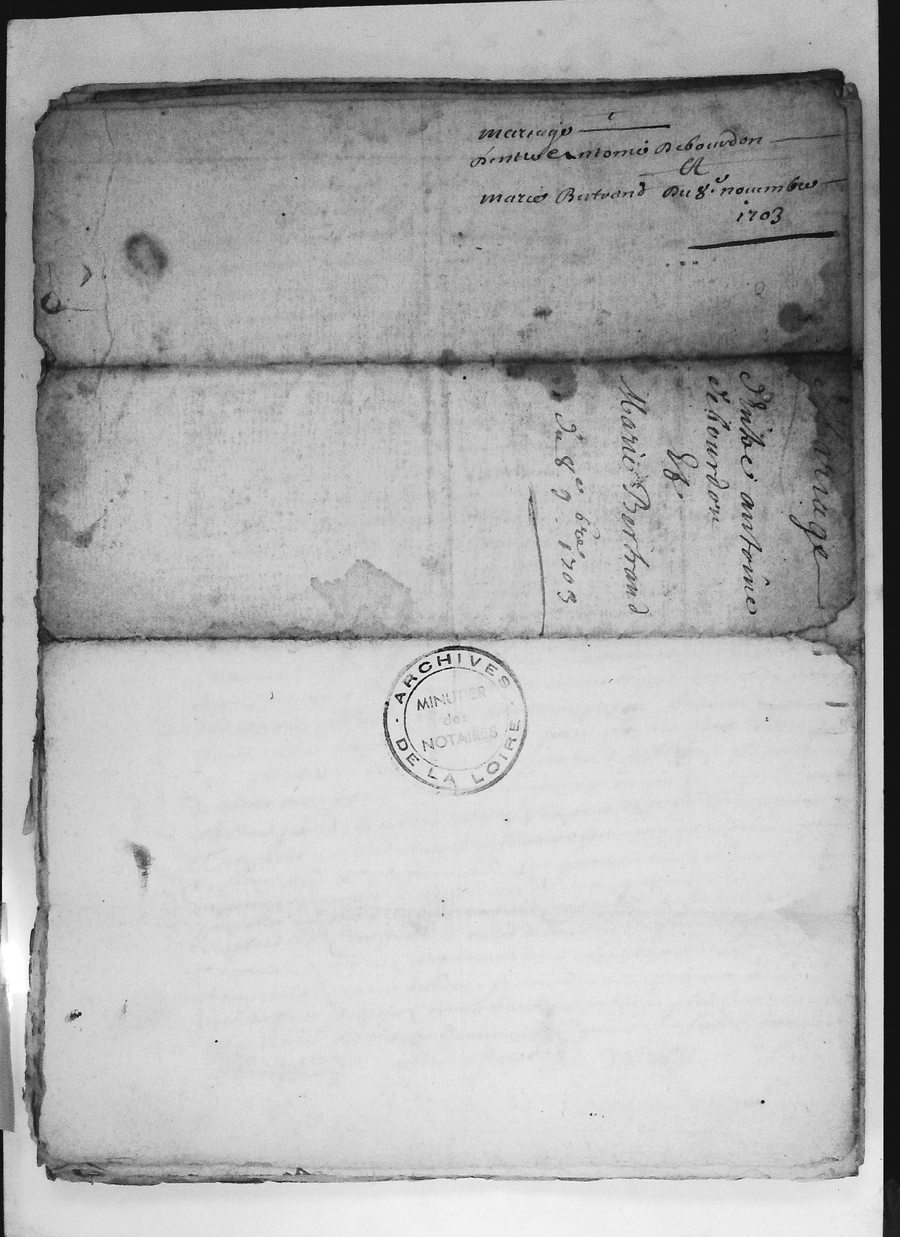 mariage
dentre antoine debourdon
et
marie Bertrand du 8e novembre
1703
Mariage
D'entre antoine
debourdon
Et
Marie Bertrand
du 8e 9bre 1703
ARCHIVES DE LA LOIRE
MINUTIER
des
NOTAIRES